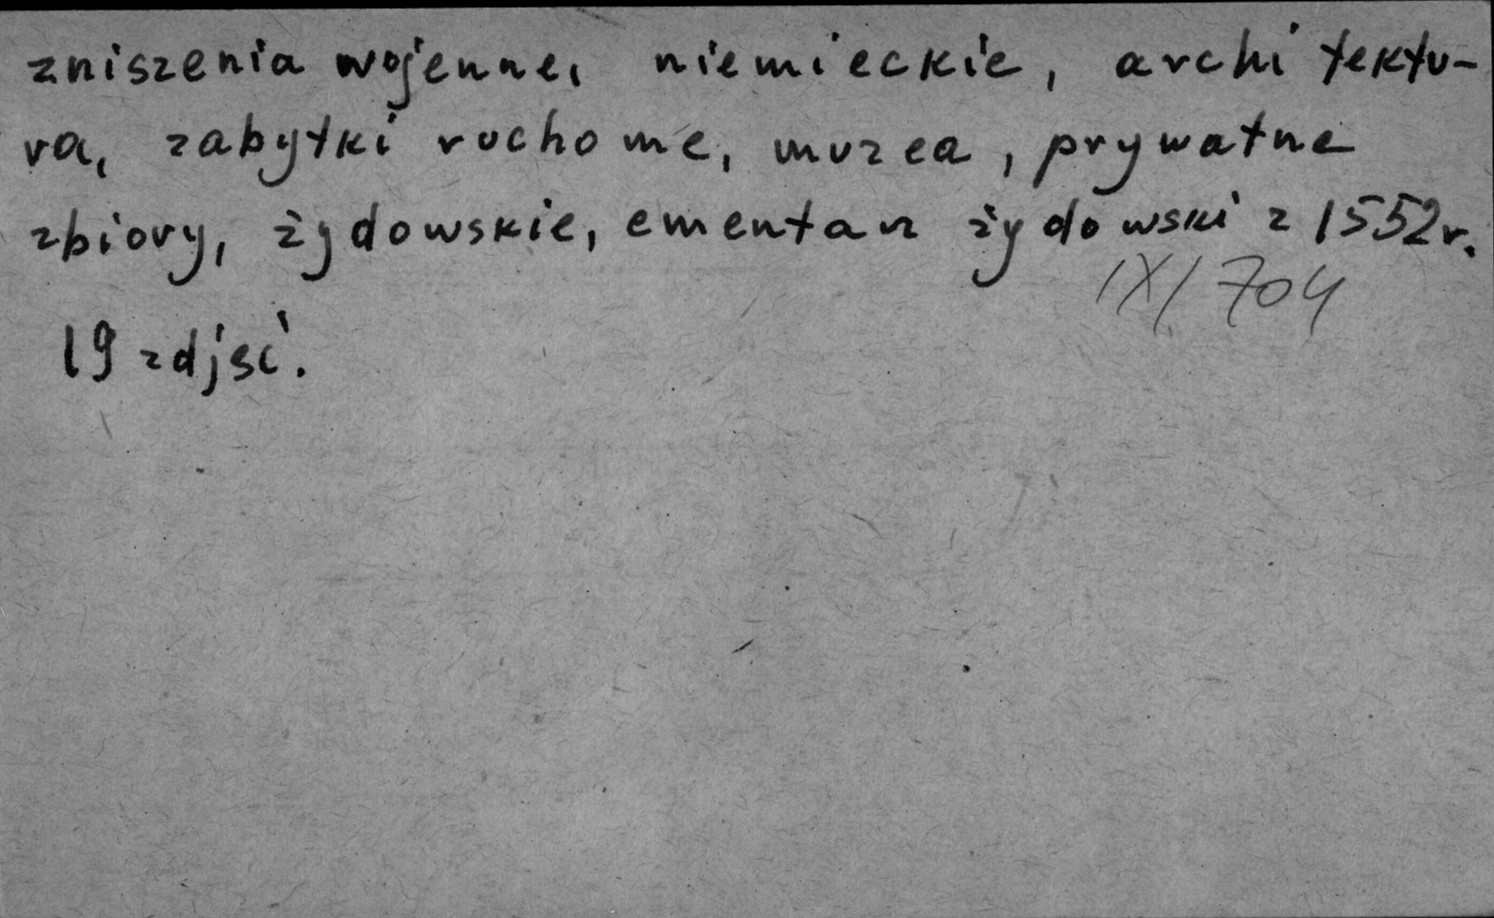 zniszenia wojenne, niemieckie, architektu-
ra, zabytki ruchome, muzea, prywatne
zbiory, żydowskie, ementarz żydowski z 1552r.
IX/704
19 zdjęć.